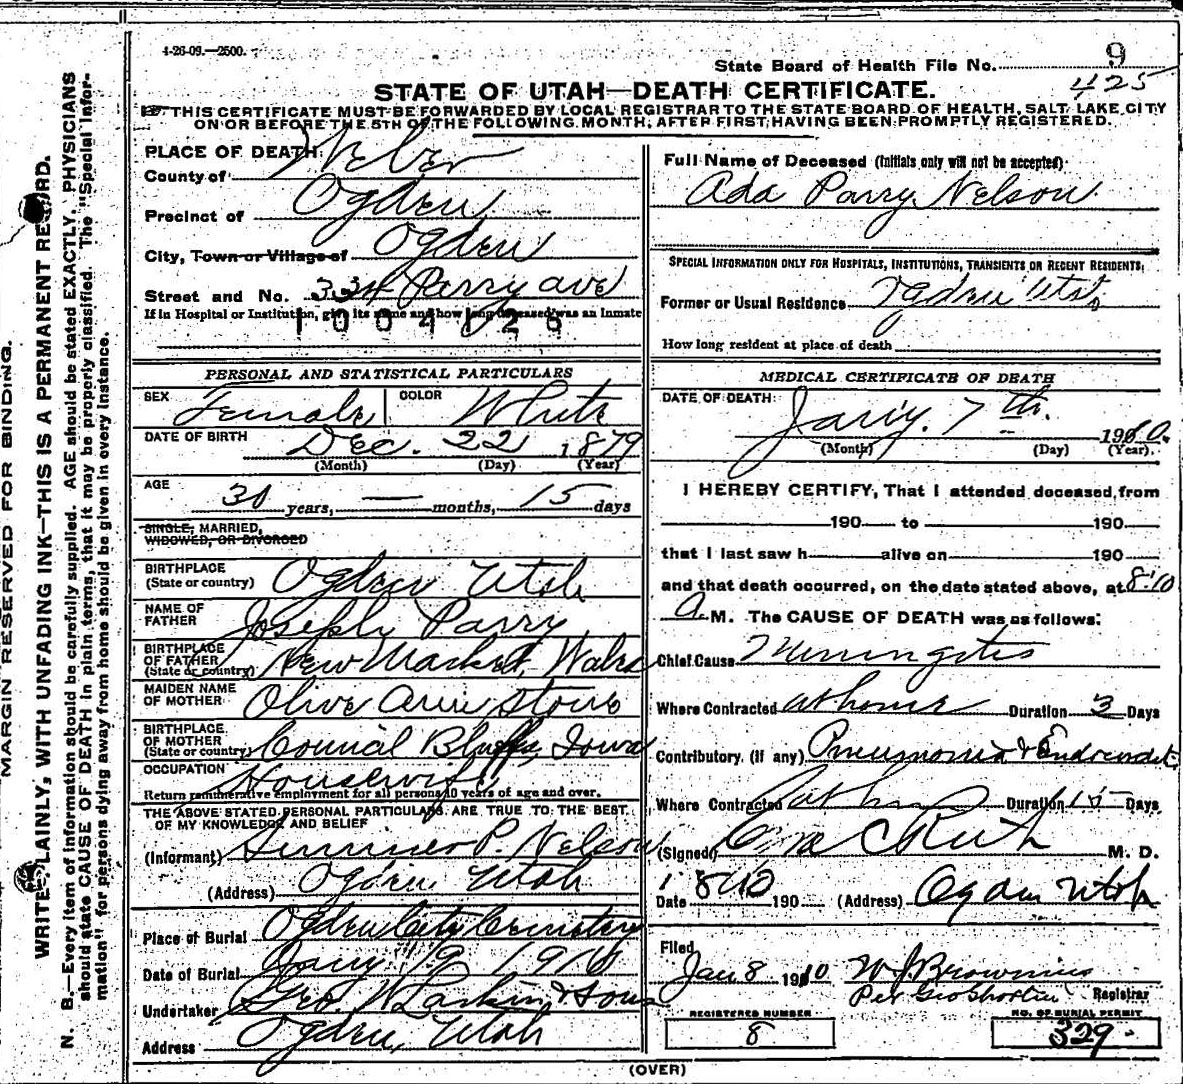 4-26-09.—2500.
State Board of Health File No. 9
425
STATE OF UTAH—DEATH CERTIFICATE.
THIS CERTIFICATE MUST BE FORWARDED BY LOCAL REGISTRAR TO THE STATE BOARD OF HEALTH, SALT LAKE CITY
ON OR BEFORE THE 5TH OF THE FOLLOWING MONTH, AFTER FIRST HAVING BEEN PROMPTLY REGISTERED.
MARGIN RESERVED FOR BINDING.
WRITE PLAINLY, WITH UNFADING INK—THIS IS A PERMANENT RECORD.
N. B.—Every item of information should be carefully supplied. AGE should be stated EXACTLY. PHYSICIANS
should state CAUSE OF DEATH in plain terms, that it may be properly classified. The "Special Infor-
mation" for persons dying away from home should be given in every instance.
PLACE OF DEATH
County of Weber
Precinct of Ogden
City, Town or Village of Ogden
Street and No. 334 Parry ave
If in Hospital or Institution, give its name and how long deceased was an Inmate
1004126
PERSONAL AND STATISTICAL PARTICULARS
SEX Female COLOR White
DATE OF BIRTH Dec. 22 1879
(Month) (Day) (Year)
AGE
30 years, — months, 15 days
SINGLE, MARRIED,
WIDOWED, OR DIVORCED
BIRTHPLACE
(State or country) Ogden Utah
NAME OF
FATHER Joseph Parry
BIRTHPLACE
OF FATHER
(State or country) New Market, Wales
MAIDEN NAME
OF MOTHER Olive Ann Stone
BIRTHPLACE
OF MOTHER
(State or country) Council Bluffs, Iowa
OCCUPATION Housewife
Return remunerative employment for all persons 10 years of age and over.
THE ABOVE STATED PERSONAL PARTICULARS ARE TRUE TO THE BEST
OF MY KNOWLEDGE AND BELIEF
(Informant) Sumner P. Nelson
(Address) Ogden Utah
Place of Burial Ogden City Cemetery
Date of Burial Jany 9 1910
Undertaker Geo. W Larkin & Sons
Address Ogden, Utah
Full Name of Deceased (Initials only will not be accepted)
Ada Parry Nelson
SPECIAL INFORMATION ONLY FOR HOSPITALS, INSTITUTIONS, TRANSIENTS OR RECENT RESIDENTS.
Former or Usual Residence Ogden Utah
How long resident at place of death
MEDICAL CERTIFICATE OF DEATH
DATE OF DEATH: Jany. 7th. 1910.
(Month) (Day) (Year).
I HEREBY CERTIFY, That I attended deceased, from
190 to 190
that I last saw h alive on 190
and that death occurred, on the date stated above, at 8:10
A. M. The CAUSE OF DEATH was as follows:
Chief Cause Meningitis
Where Contracted at home Duration 3 Days
Contributory. (if any) Pneumonia & Endocardit.
Where Contracted at home Duration 15 Days
(Signed) M. D.
Date 1 8 10 190 (Address) Ogden Utah
Filed
Jan 8 1910 W J Browning
Per Geo Shorten Registrar
REGISTERED NUMBER
8
NO. OF BURIAL PERMIT
329
(OVER)